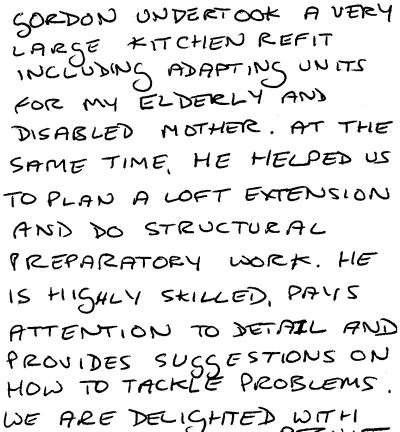 GORDON UNDERTOOK A VERY
LARGE KITCHEN REFIT
INCLUDING ADAPTING UNITS
FOR MY ELDERLY AND
DISABLED MOTHER. AT THE
SAME TIME, HE HELPED US
TO PLAN A LOFT EXTENSION
AND DO STRUCTURAL
PREPARATORY WORK. HE
IS HIGHLY SKILLED, PAYS
ATTENTION TO DETAIL AND
PROVIDES SUGGESTIONS ON
HOW TO TACKLE PROBLEMS.
WE ARE DELIGHTED WITH